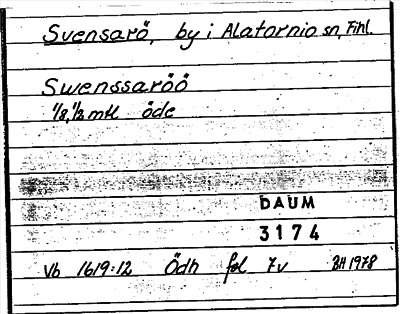 Svensarö, by i Alatornio sn, Finl.
Swenssaröö
1/8, 1/2 mtl öde
DAUM
3174
Vb 1619:12 Ödh fol 7v BH 1978